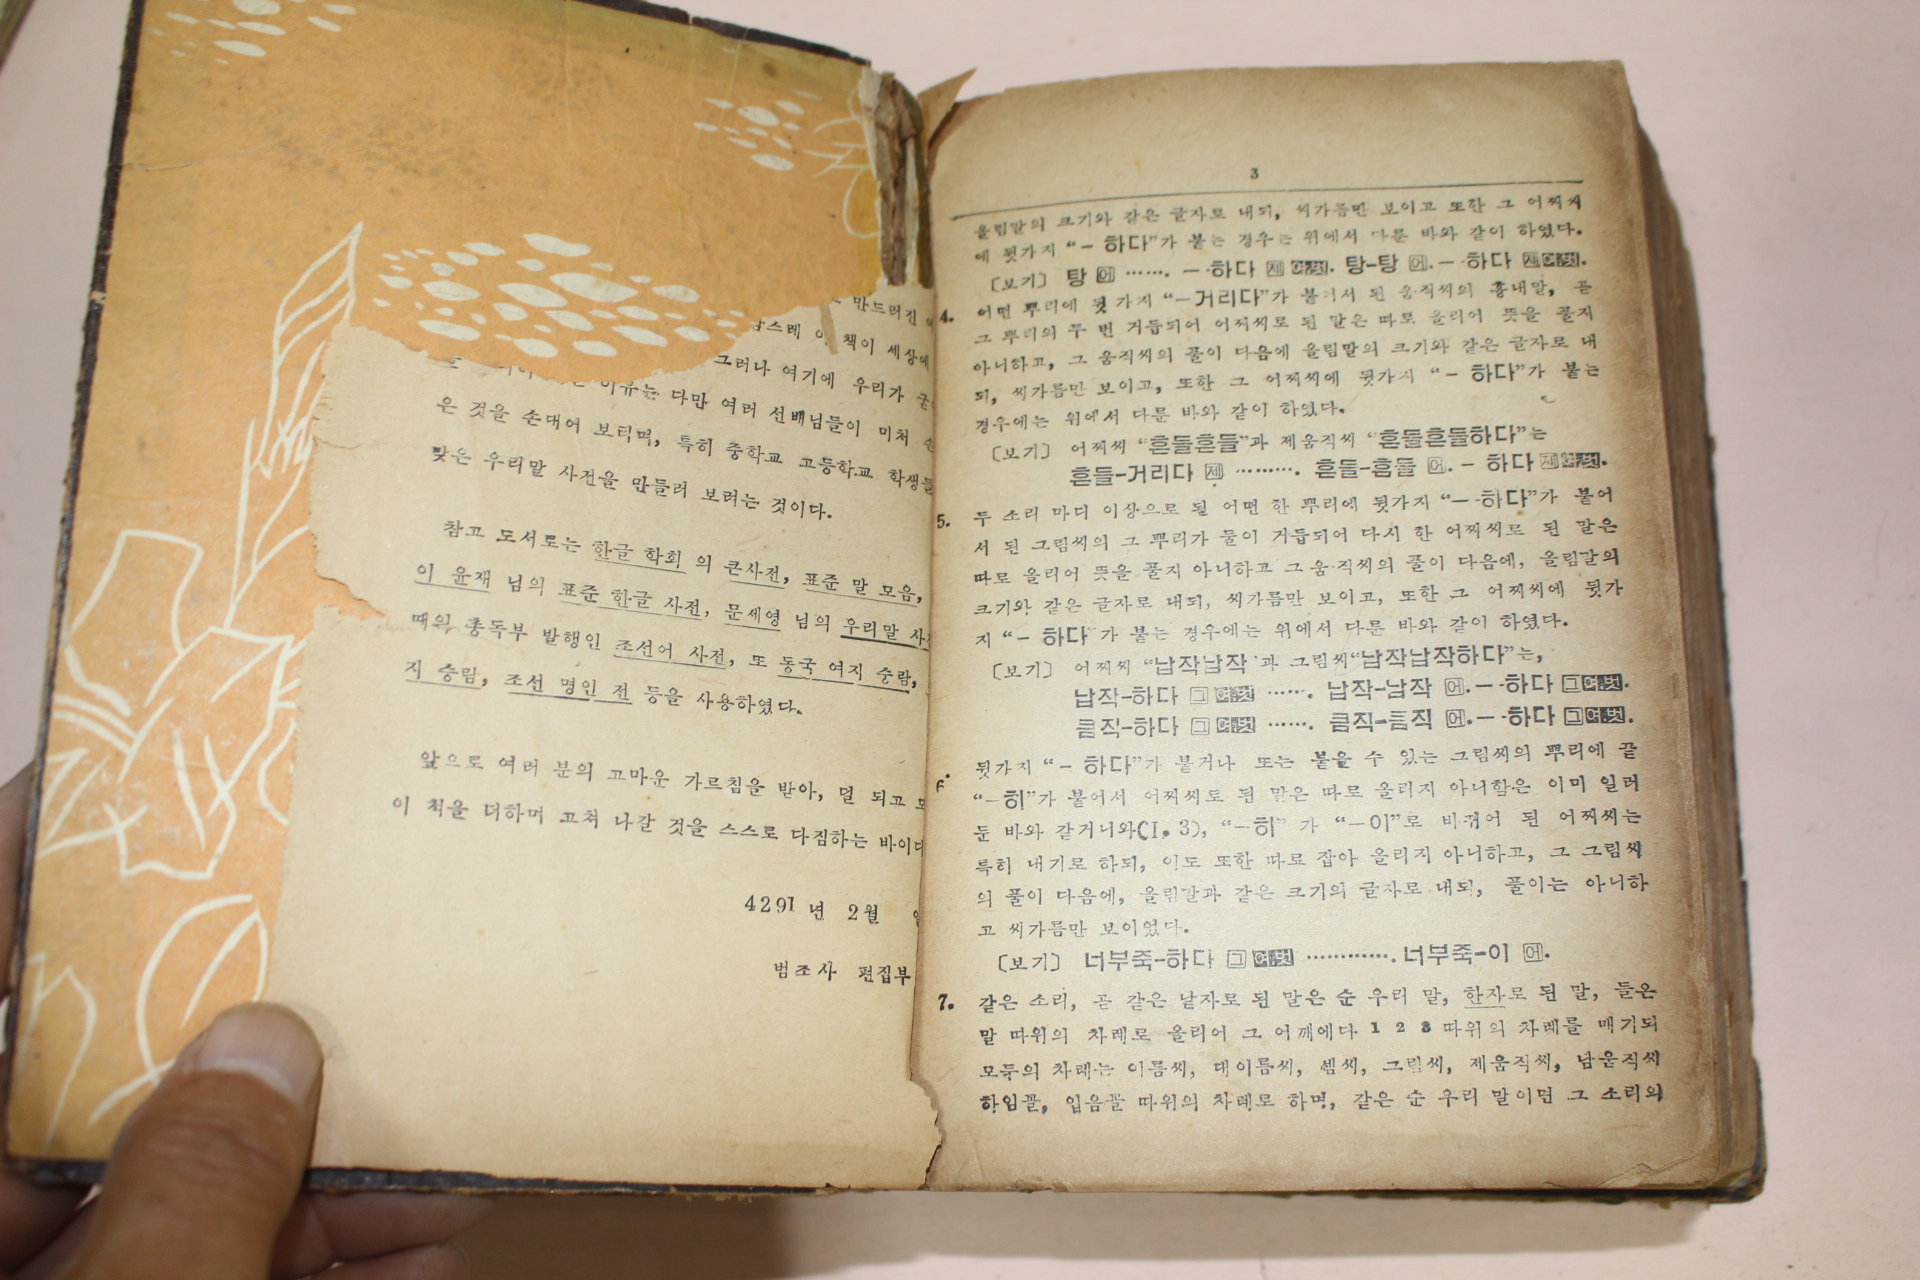 만드러진
책이 세상에
그러나 여기에 우리가
이유는 다만 여러 선배님들이 미처
은 것을 손대어 보태며, 특히 중학교 고등학교 학생들
맞은 우리말 사전을 만들러 보려는 것이다.
참고 도서로는 한글 학회 의 큰사전, 표준 말 모음,
이 윤재 님의 표준 한글 사전, 문세영 님의 우리말 사
때의 총독부 발행인 조선어 사전, 또 동국 여지 승람,
지 승람, 조선 명인 전 등을 사용하였다.
앞으로 여러 분의 고마운 가르침을 받아, 덜 되고
이 책을 더하며 고쳐 나갈 것을 스스로 다짐하는 바이다
4291 년 2월
범조사 편집부
3
올림말의 크기와 같은 글자로 내되, 씨가름만 보이고 또한 그 어찌씨
에 뒷가지 “－하다”가 붙는 경우는 위에서 다룬 바와 같이 하였다.
〔보기〕 탕 어 ……. －하다 제 여.벗. 탕-탕 어.－하다 제여.벗.
4. 어떤 뿌리에 뒷가지 “－거리다”가 붙어서 된 움직씨의 흉내말, 곧
그 뿌리의 두 번 거듭되어 어찌씨로 된 말은 따로 올리어 뜻을 풀지
아니하고, 그 움직씨의 풀이 다음에 올림말의 크기와 같은 글자로 내
되, 씨가름만 보이고, 또한 그 어찌씨에 뒷가지 “－하다”가 붙는
경우에는 위에서 다룬 바와 같이 하였다.
〔보기〕 어찌씨 “흔들흔들”과 제움직씨 “흔들흔들하다”는
흔들-거리다 제 ………. 흔들-흔들 어.－하다 제여.벗.
5. 두 소리 마디 이상으로 될 어떤 한 뿌리에 뒷가지 “－하다”가 붙어
서 된 그림씨의 그 뿌리가 둘이 거듭되어 다시 한 어찌씨로 된 말은
따로 올리어 뜻을 풀지 아니하고 그 움직씨의 풀이 다음에, 올림말의
크기와 같은 글자로 내되, 씨가름만 보이고, 또한 그 어찌씨에 뒷가
지 “－하다”가 붙는 경우에는 위에서 다룬 바와 같이 하였다.
〔보기〕 어찌씨 “납작납작”과 그림씨“납작납작하다”는,
납작-하다 그 여.벗 ……. 납작-납작 어.－하다 그여.벗.
큼직-하다 그 여.벗 ……. 큼직-큼직 어.－하다 그여.벗.
6. 뒷가지 “－하다”가 붙거나 또는 붙을 수 있는 그림씨의 뿌리에 끝
“－히”가 붙어서 어찌씨로 된 말은 따로 올리지 아니함은 이미 일러
둔 바와 같거니와(Ⅰ. 3), “－히” 가 “－이”로 바뀌어 된 어찌씨는
특히 내기로 하되, 이도 또한 따로 잡아 올리지 아니하고, 그 그림씨
의 풀이 다음에, 올림말과 같은 크기의 글자로 내되, 풀이는 아니하
고 씨가름만 보이었다.
〔보기〕 너부죽-하다 그 여.벗 …………. 너부죽-이 어.
7. 같은 소리, 곧 같은 낱자로 된 말은 순 우리 말, 한자로 된 말, 들온
말 따위의 차례로 올리어 그 어깨에다 1 2 3 따위의 차례를 매기되
모두의 차례는 이름씨, 대이름씨, 셈씨, 그림씨, 제움직씨, 남움직씨
하임꼴, 입음꼴 따위의 차례로 하며, 같은 순 우리 말이면 그 소리의